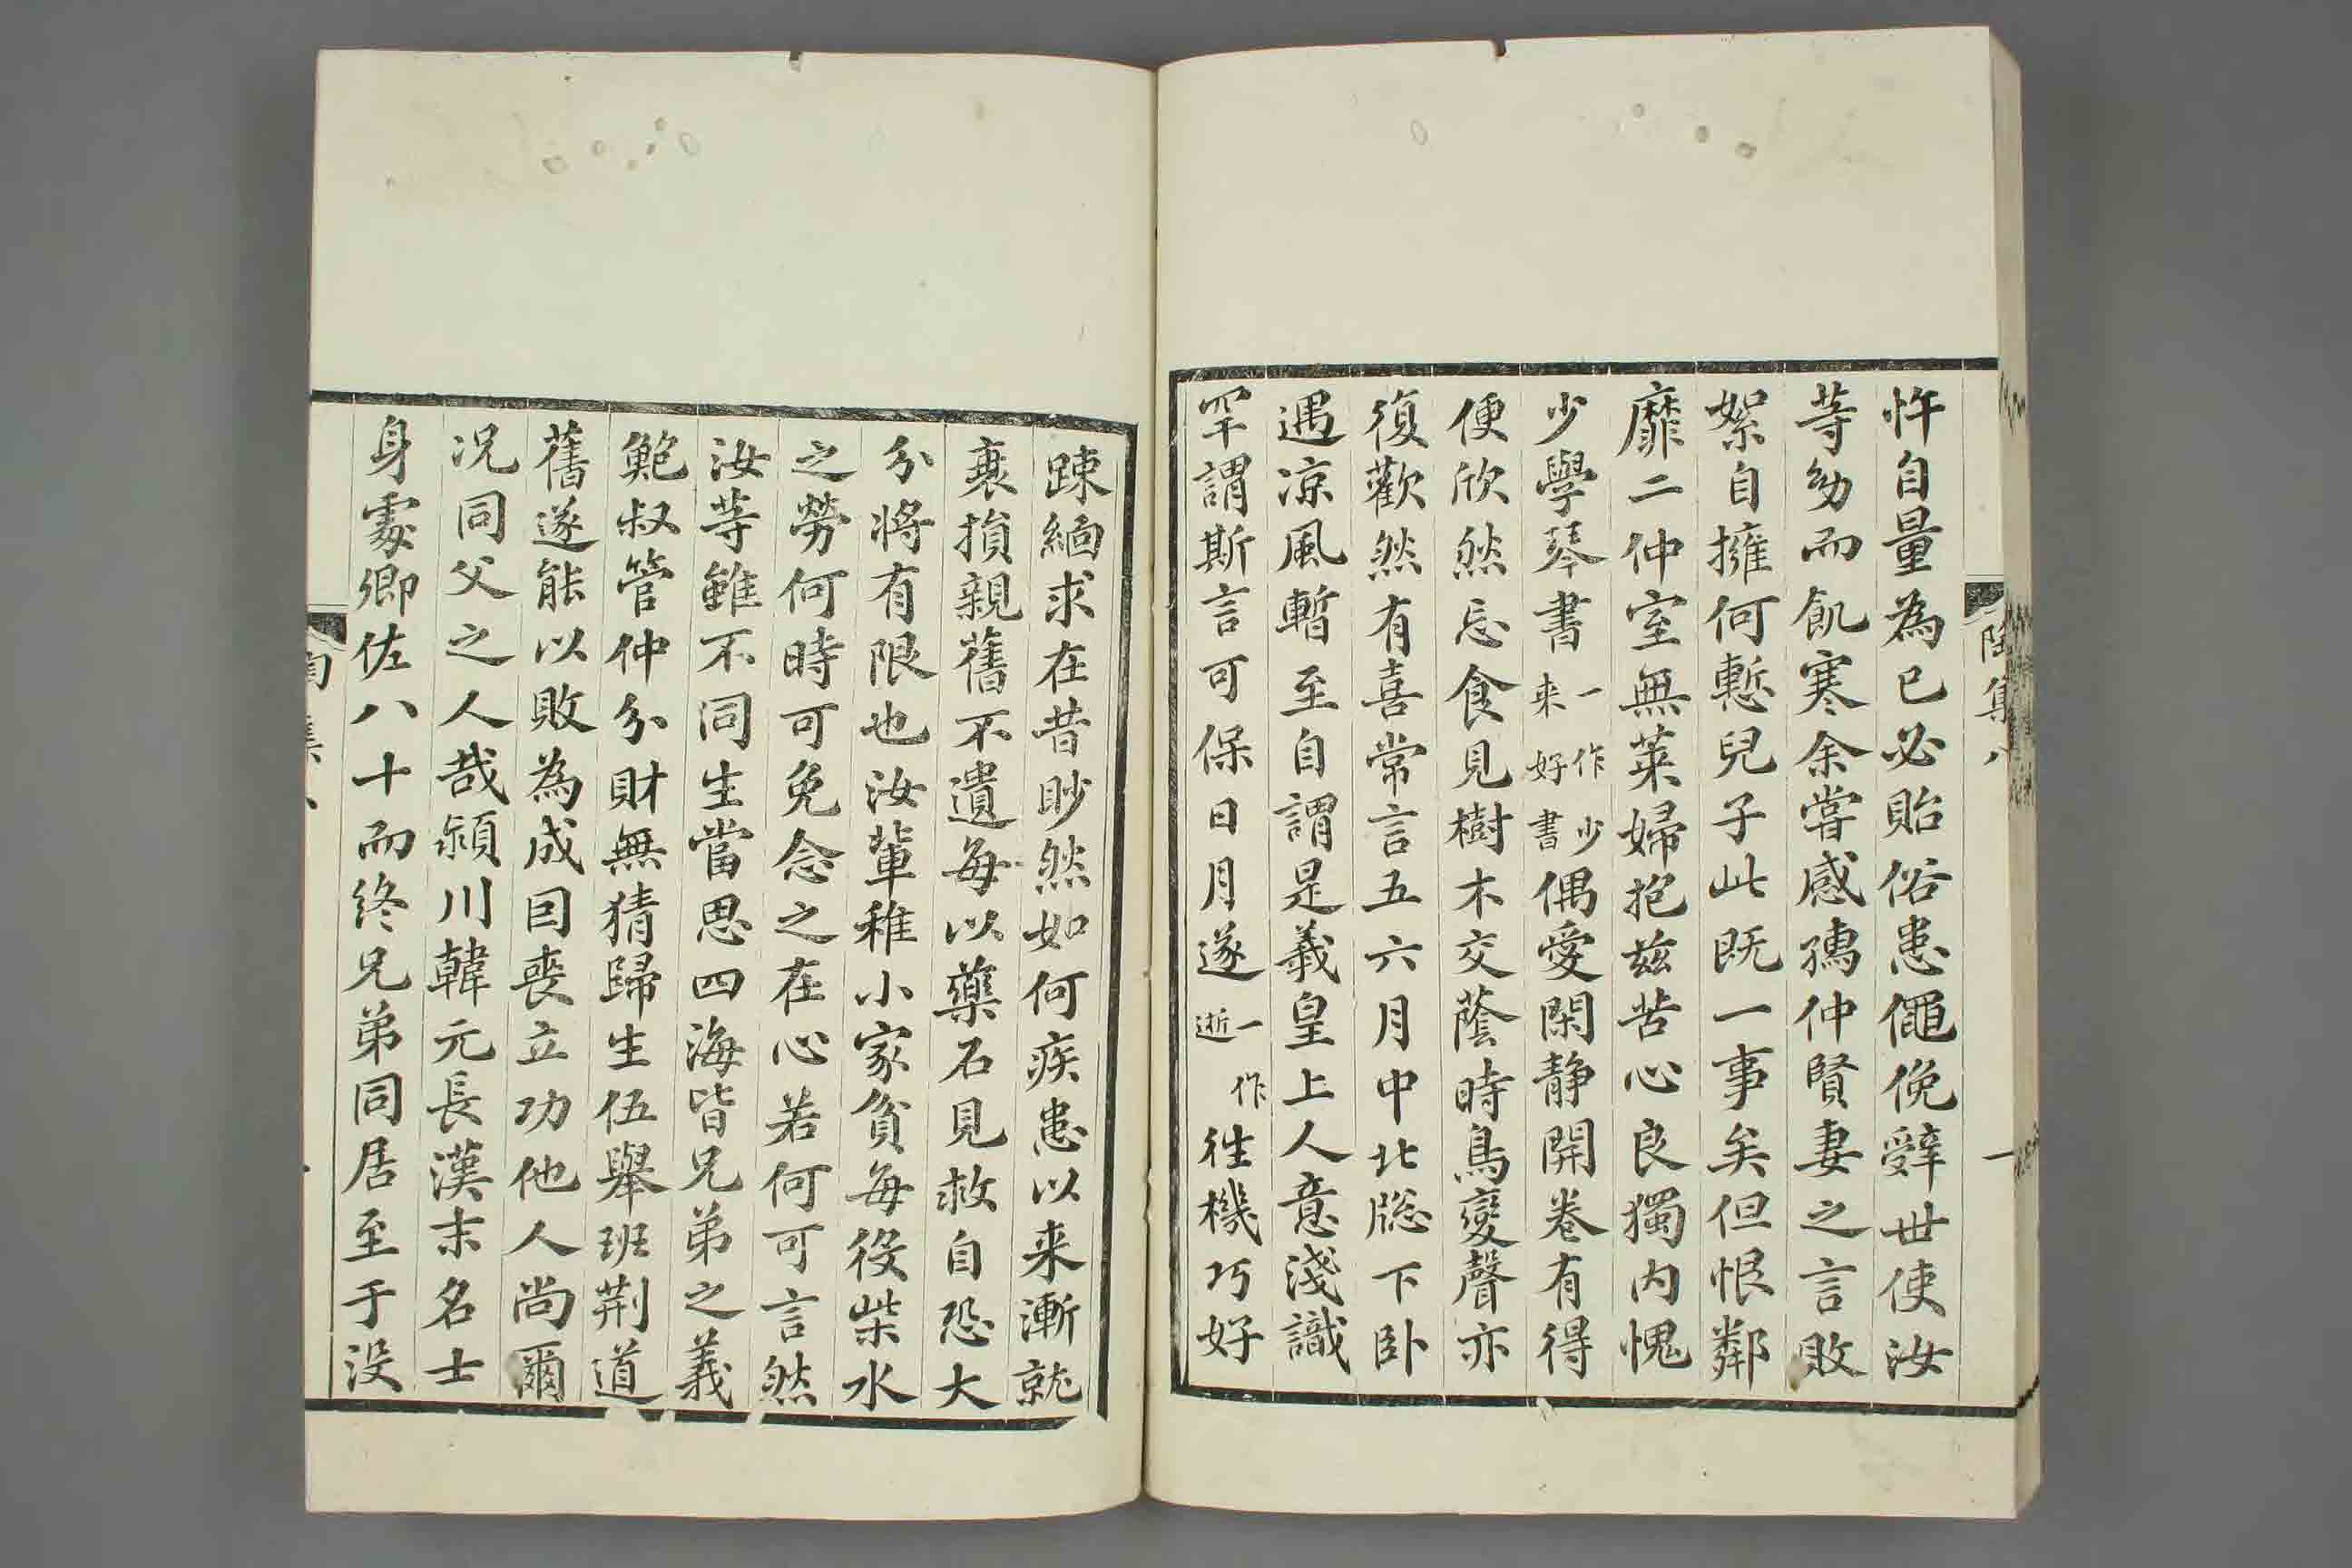 忤自量為已必貽俗患僶俛辤世使汝
䓁㓜而飢寒余甞感孺仲賢妻之言敗
絮自擁何慙兒子此既一事矣但恨鄰
靡二仲室無萊婦抱茲苦心良獨内愧
少學琴書一作少来好書偶愛閑静開卷有得
便欣然忘食見樹木交蔭時鳥變聲亦
復歡然有喜常言五六月中北牎下卧
遇凉風暫至自謂是羲皇上人意淺識
罕謂斯言可保日月遂一作逝徃機巧好
踈緬求在昔眇然如何疾患以来漸就
衰損親舊不遺每以藥石見救自恐大
分将有限也汝輩稚小家貧每役柴水
之勞何時可免念之在心若何可言然
汝䓁雖不同生當思四海皆兄弟之義
鮑叔管仲分財無猜歸生伍舉班荆道
舊遂能以敗為成因喪立功他人尚爾
况同父之人哉潁川韓元長漢末名士
身處卿佐八十而終兄弟同居至于没
陶集八
一